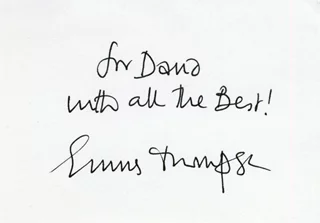 for David
with all the Best!
Emma Thompson